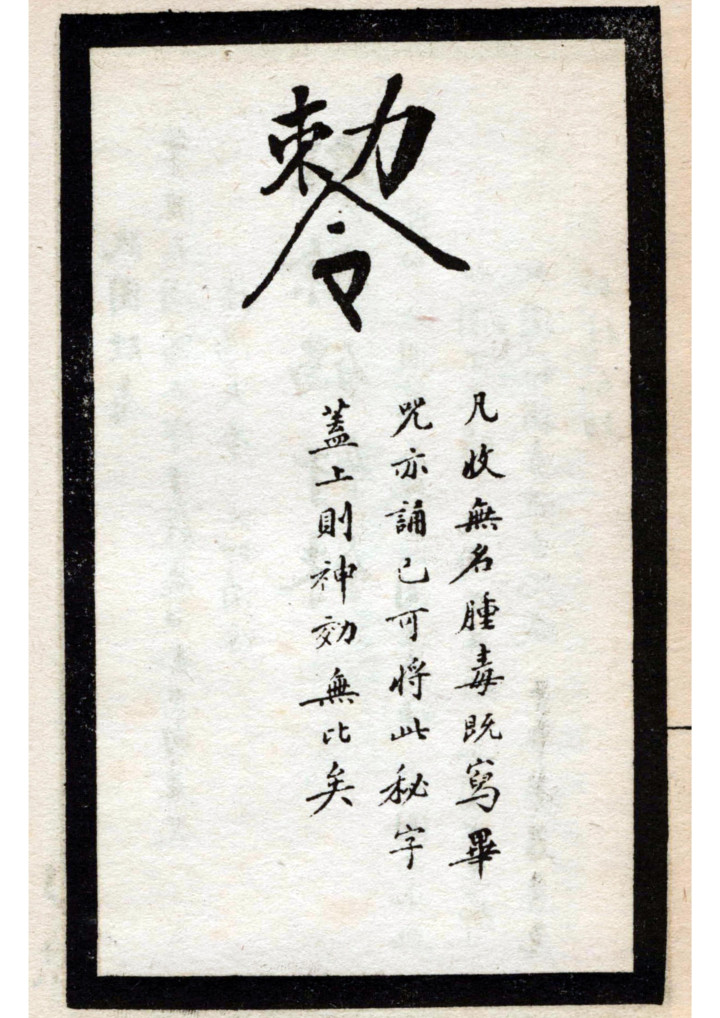 勅令
凡收無名腫毒既寫畢
咒亦誦已可將此秘字
蓋上則神効無比矣